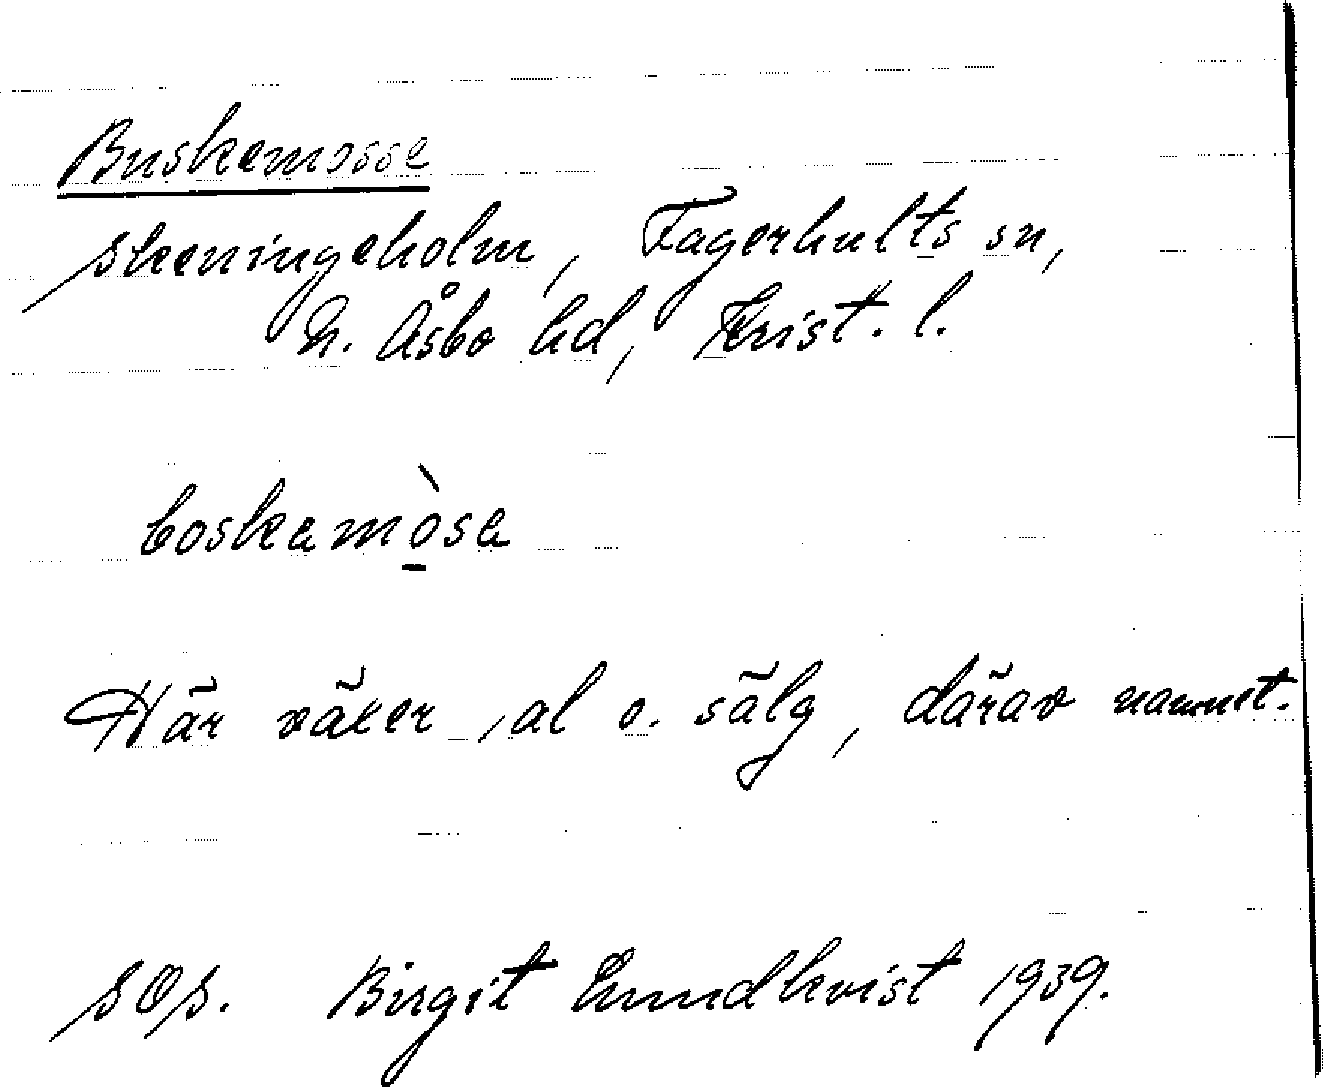 Buskemosse
Skeningeholm, Fagerhults sn,
N. Åsbo hd, Krist. l.
boskamòsa
Här växer al o. sälg, därav namnet.
SOS. Birgit Lundkvist 1939.